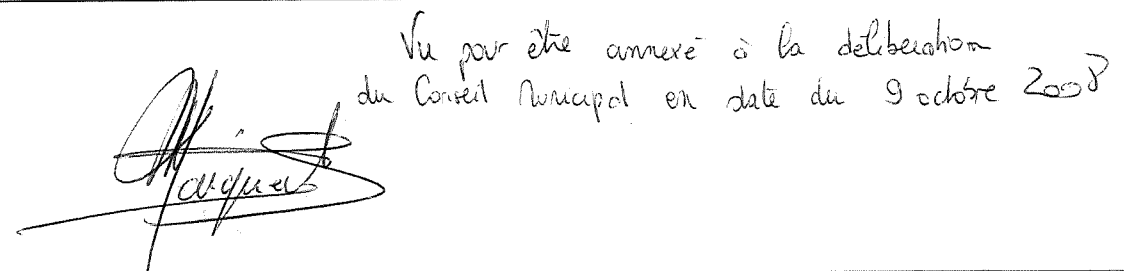 Vu pour être annexé à la délibération
du Conseil Municipal en date du 9 octobre 2008